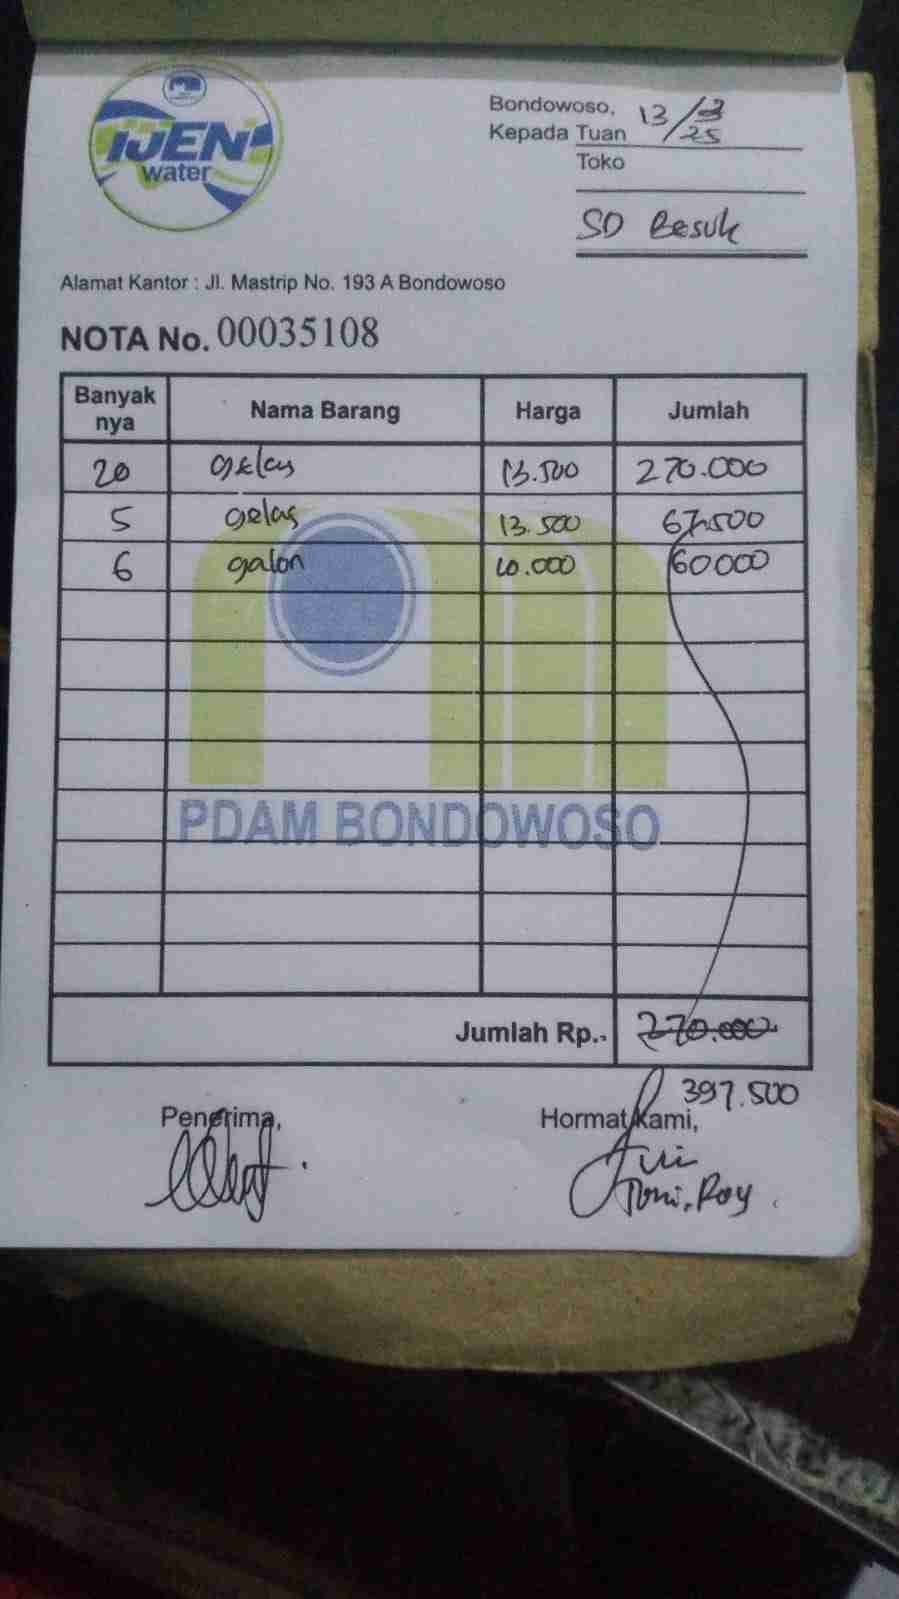 IJEN
water
Bondowoso, 13/3/25
Kepada Tuan
Toko
SD Besuk
Alamat Kantor : Jl. Mastrip No. 193 A Bondowoso
NOTA No. 00035108
Banyak nya Nama Barang Harga Jumlah
20 gelas 13.500 270.000
5 gelas 13.500 67.500
6 galon 10.000 60000
PDAM BONDOWOSO
Jumlah Rp.. 270.000
397.500
Penerima, Hormat Kami,
Toni. Roy